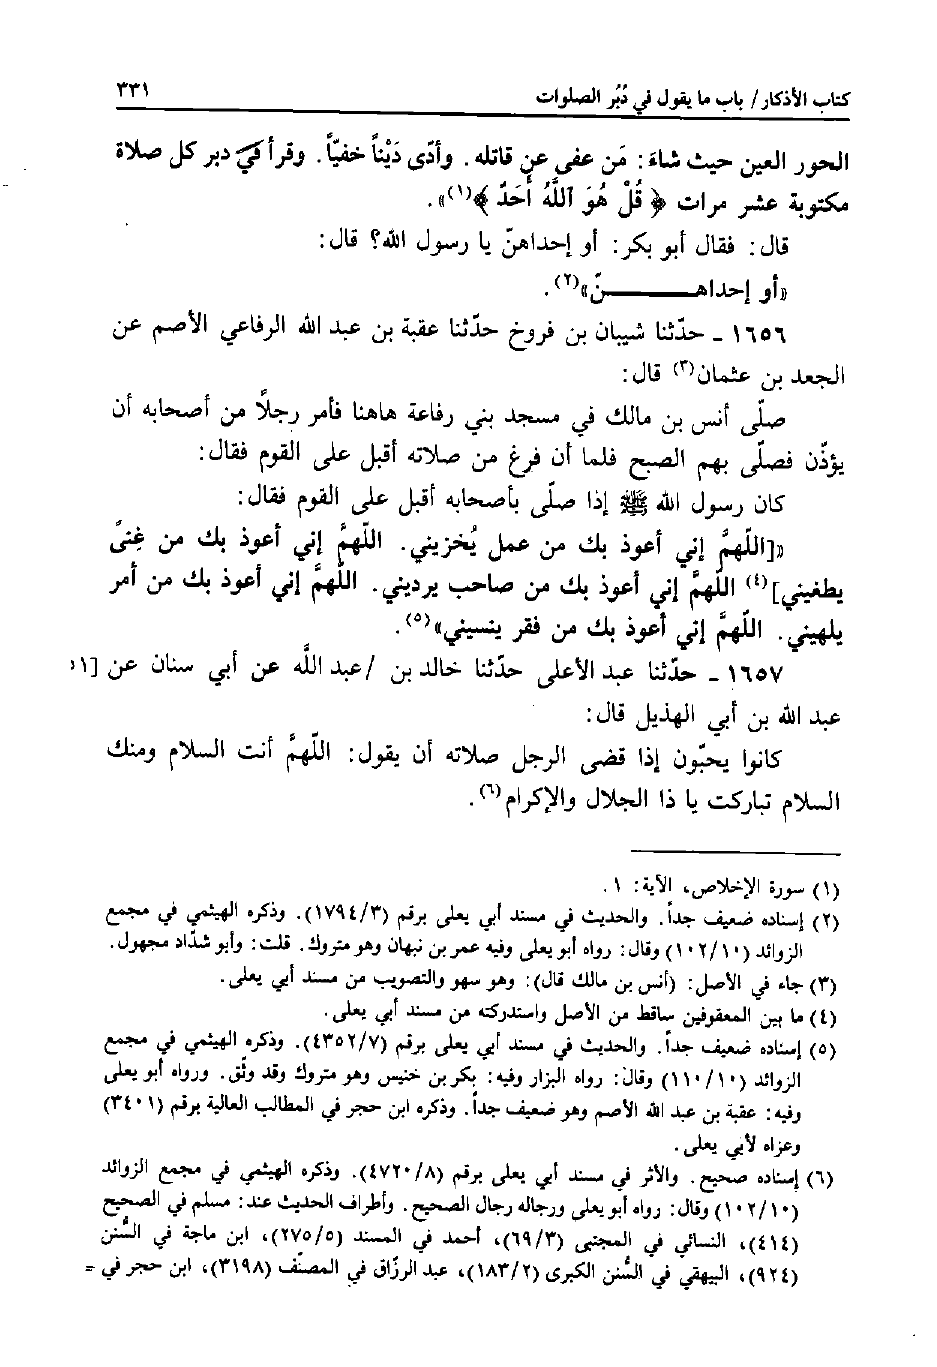 كتاب الأذكار/ باب ما يقول في دُبُر الصلوات ٣٣١
الحور العين حيث شاءَ: مَن عفى عن قاتله. وأدّى دَيْناً خفيّاً. وقرأ في دبر كل صلاة
مكتوبة عشر مرات ﴿قُلْ هُوَ ٱللَّهُ أَحَدٌ﴾(١)».
قال: فقال أبو بكر: أو إحداهنّ يا رسول الله؟ قال:
«أو إحداهـــــــنّ»(٢).
١٦٥٦ ـ حدّثنا شيبان بن فروخ حدّثنا عقبة بن عبد الله الرفاعي الأصم عن
الجعد بن عثمان(٣) قال:
صلّى أنس بن مالك في مسجد بني رفاعة هاهنا فأمر رجلاً من أصحابه أن
يؤذّن فصلّى بهم الصبح فلما أن فرغ من صلاته أقبل على القوم فقال:
كان رسول الله ﷺ إذا صلّى بأصحابه أقبل على القوم فقال:
«[اللّهمَّ إني أعوذ بك من عمل يُخزيني. اللّهمَّ إني أعوذ بك من غِنىً
يطغيني](٤) اللّهمَّ إني أعوذ بك من صاحب يرديني. اللّهمَّ إني أعوذ بك من أمر
يلهيني. اللّهمَّ إني أعوذ بك من فقر ينسيني»(٥).
١٦٥٧ ـ حدّثنا عبد الأعلى حدّثنا خالد بن /عبد اللَّه عن أبي سنان عن [١
عبد الله بن أبي الهذيل قال:
كانوا يحبّون إذا قضى الرجل صلاته أن يقول: اللّهمَّ أنت السلام ومنك
السلام تباركت يا ذا الجلال والإكرام(٦).
(١) سورة الإخلاص، الآية: ١.
(٢) إسناده ضعيف جداً. والحديث في مسند أبي يعلى برقم (١٧٩٤/٣). وذكره الهيثمي في مجمع
الزوائد (١٠٢/١٠) وقال: رواه أبو يعلى وفيه عمر بن نبهان وهو متروك. قلت: وأبو شدّاد مجهول.
(٣) جاء في الأصل: (أنس بن مالك قال): وهو سهو والتصويب من مسند أبي يعلى.
(٤) ما بين المعقوفين ساقط من الأصل واستدركته من مسند أبي يعلى.
(٥) إسناده ضعيف جداً. والحديث في مسند أبي يعلى برقم (٤٣٥٢/٧). وذكره الهيثمي في مجمع
الزوائد (١١٠/١٠) وقال: رواه البزار وفيه: بكر بن خنيس وهو متروك وقد وثّق. ورواه أبو يعلى
وفيه: عقبة بن عبد الله الأصم وهو ضعيف جداً. وذكره ابن حجر في المطالب العالية برقم (٣٤٠١)
وعزاه لأبي يعلى.
(٦) إسناده صحيح. والأثر في مسند أبي يعلى برقم (٤٧٢٠/٨). وذكره الهيثمي في مجمع الزوائد
(١٠٢/١٠) وقال: رواه أبو يعلى ورجاله رجال الصحيح. وأطراف الحديث عند: مسلم في الصحيح
(٤١٤)، النسائي في المجتبى (٦٩/٣)، أحمد في المسند (٢٧٥/٥)، ابن ماجة في السُّنن
(٩٢٤)، البيهقي في السُّنن الكبرى (١٨٣/٢)، عبد الرزّاق في المصنّف (٣١٩٨)، ابن حجر في =